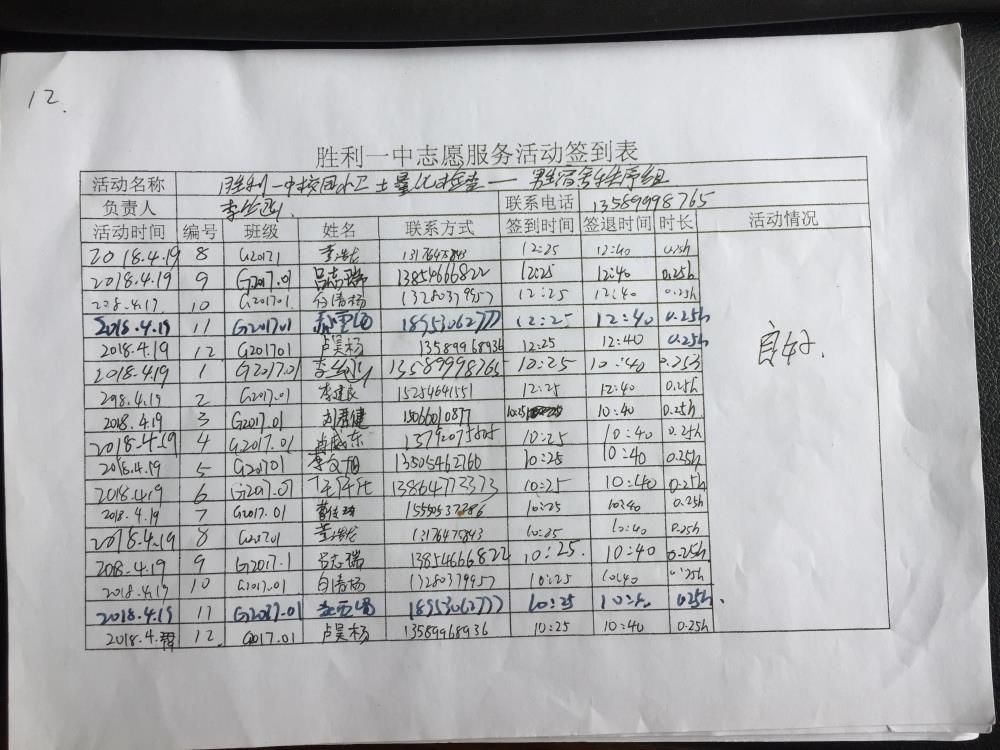 12.
胜利一中志愿服务活动签到表
活动名称 胜利一中校园水卫士量化检查——男生宿舍秩序组
负责人 联系电话 13589998765
活动时间 编号 班级 姓名 联系方式 签到时间 签退时间 时长 活动情况
2018.4.19 8 G20171 13176475843 12:25 12:40 0.25h
2018.4.19 9 G2017.01 吕志瑞 13854666822 12:25 12:40 0.25h
208.4.19 10 G201701 白清杨 13280379957 12:25 12:40 0.25h
2018.4.19 11 G201701 18953062777 12:25 12:40 0.25h
2018.4.19 12 G201701 卢昊杨 13589968936 12:25 12:40 0.25h
良好.
2018.4.19 1 G2017.01 13589998765 10:25 10:40 0.25h
298.4.19 2 G2017.01 李建良 15254641551 12:25 12:40 0.25h
2018.4.19 3 G2017.01 刘君健 15066010877 10:25 10:40 0.25h
2018.4.19 4 G.2017.01 13792075505 10:25 10:40 0.25h
2018.4.19 5 G201701 李文旭 13505462760 10:25 10:40 0.25h
2018.4.19 6 G2017.01 13864773373 10:25 10:40 0.25h
2018.4.19 7 G2017.01 15550537286 10:25 10:40 0.25h
2018.4.19 8 G201701 13176475843 10:25 10:40 0.25h
208.4.19 9 G2017.1 吕志瑞 13854666822 10:25. 10:40 0.25h
2018.4.19 10 G2017.01 白清杨 13280379957 10:25 10:40 0.25h
2018.4.19 11 G2017.01 18953062777 10:25 10:40 0.25h.
2018.4. 12 G2017.01 卢昊杨 13589968936 10:25 10:40 0.25h